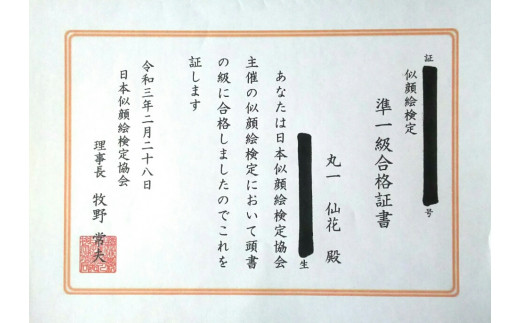 証 号
似顔絵検定
準一級合格証書
丸一 仙花 殿
生
あなたは日本似顔絵検定協会
主催の似顔絵検定において頭書
の級に合格しましたのでこれを
証します
令和三年二月二十八日
日本似顔絵検定協会
理事長 牧野 常夫